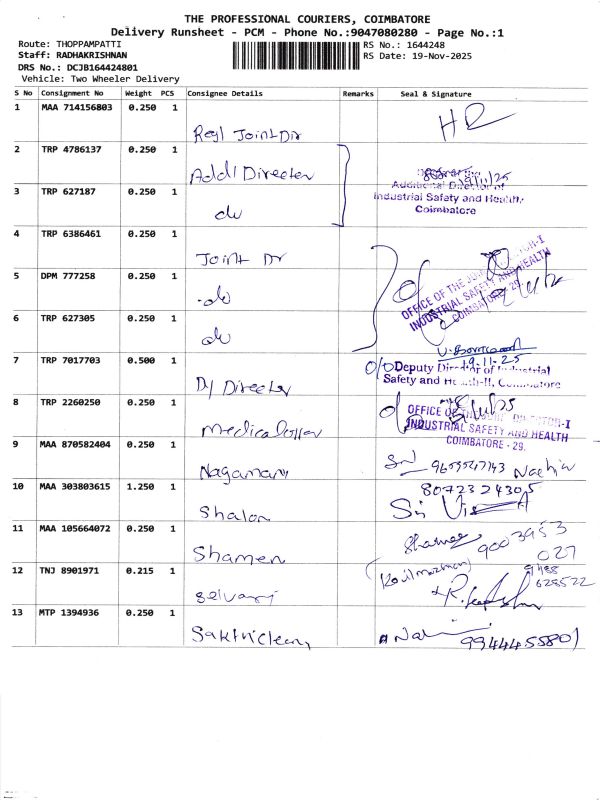 THE PROFESSIONAL COURIERS, COIMBATORE
Delivery Runsheet - PCM - Phone No.:9047080280 - Page No.:1
Route: THOPPAMPATTI
RS No.: 1644248
Staff: RADHAKRISHNAN
RS Date: 19-Nov-2025
DRS No.: DCJB164424801
Vehicle: Two Wheeler Delivery
S No Consignment No Weight PCS Consignee Details Remarks Seal & Signature
1 MAA 714156803 0.250 1
Regl Joint Dir
2 TRP 4786137 0.250 1
Addl Director
3 TRP 627187 0.250 1
do
Additional Director of
Industrial Safety and Health,
Coimbatore
4 TRP 6386461 0.250 1
Joint Dr
5 DPM 777258 0.250 1
do
OFFICE OF THE JOINT DIRECTOR-I
INDUSTRIAL SAFETY AND HEALTH
COIMBATORE - 29.
6 TRP 627305 0.250 1
do
19.11.25
7 TRP 7017703 0.500 1
Dy Director
O/O Deputy Director of Industrial
Safety and Health-II, Coimbatore
8 TRP 2260250 0.250 1
OFFICE OF THE JOINT DIRECTOR-I
INDUSTRIAL SAFETY AND HEALTH
COIMBATORE - 29.
9 MAA 870582404 0.250 1
Nagamani
10 MAA 303803615 1.250 1
Shalon
8072324305
11 MAA 105664072 0.250 1
Shamen
9003953
027
12 TNJ 8901971 0.215 1
Selvaraj
13 MTP 1394936 0.250 1
9944455801